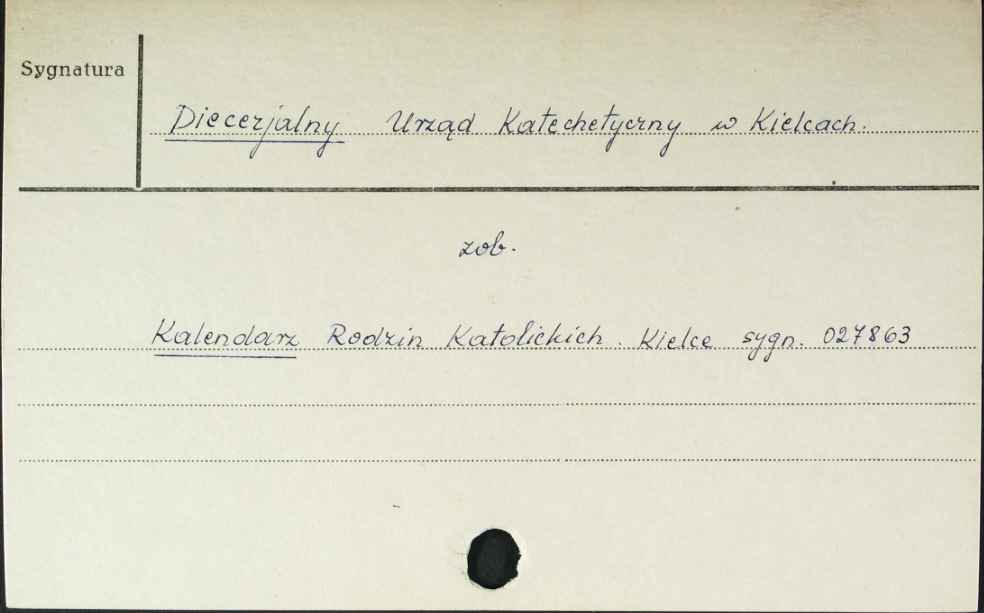 Sygnatura
Diecezjalny Urząd Katechetyczny w Kielcach.
zob.
Kalendarz Rodzin Katolickich. Kielce sygn. 027863